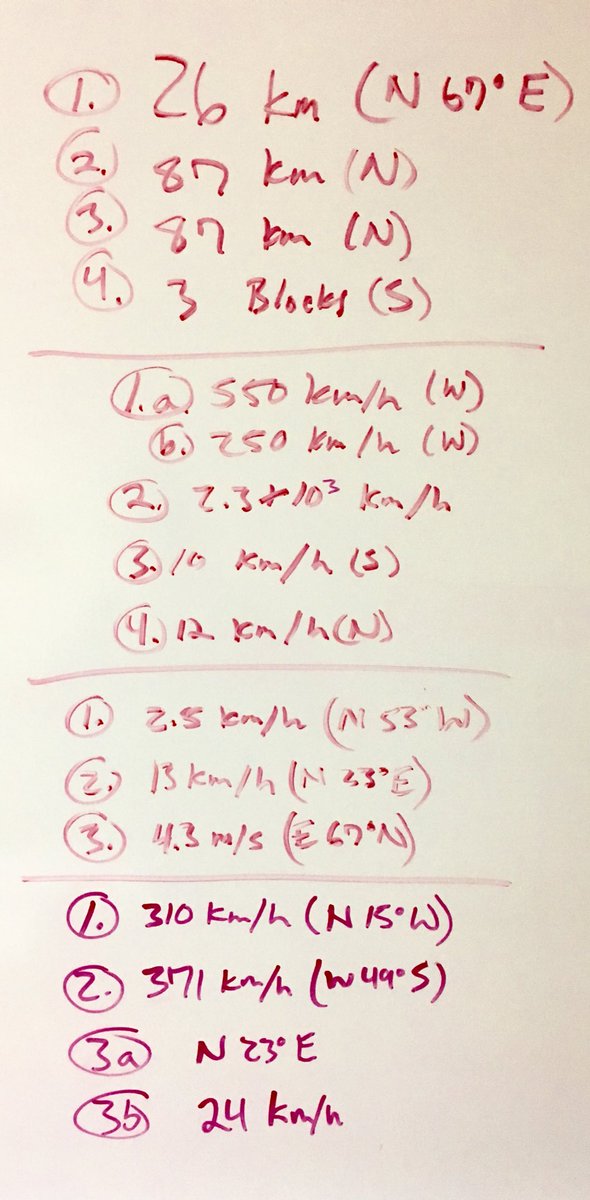 1. 26 km (N 67° E)
2. 87 km (N)
3. 87 km (N)
4. 3 Blocks (S)
1.a. 550 km/h (W)
b. 250 km/h (W)
2. 2.3 * 10³ km/h
3. 10 km/h (S)
4. 12 km/h (N)
1. 2.5 km/h (N 53° W)
2. 13 km/h (N 23° E)
3. 4.3 m/s (E 67° N)
1. 310 km/h (N 15° W)
2. 371 km/h (W 49° S)
3a N 23° E
3b 24 km/h